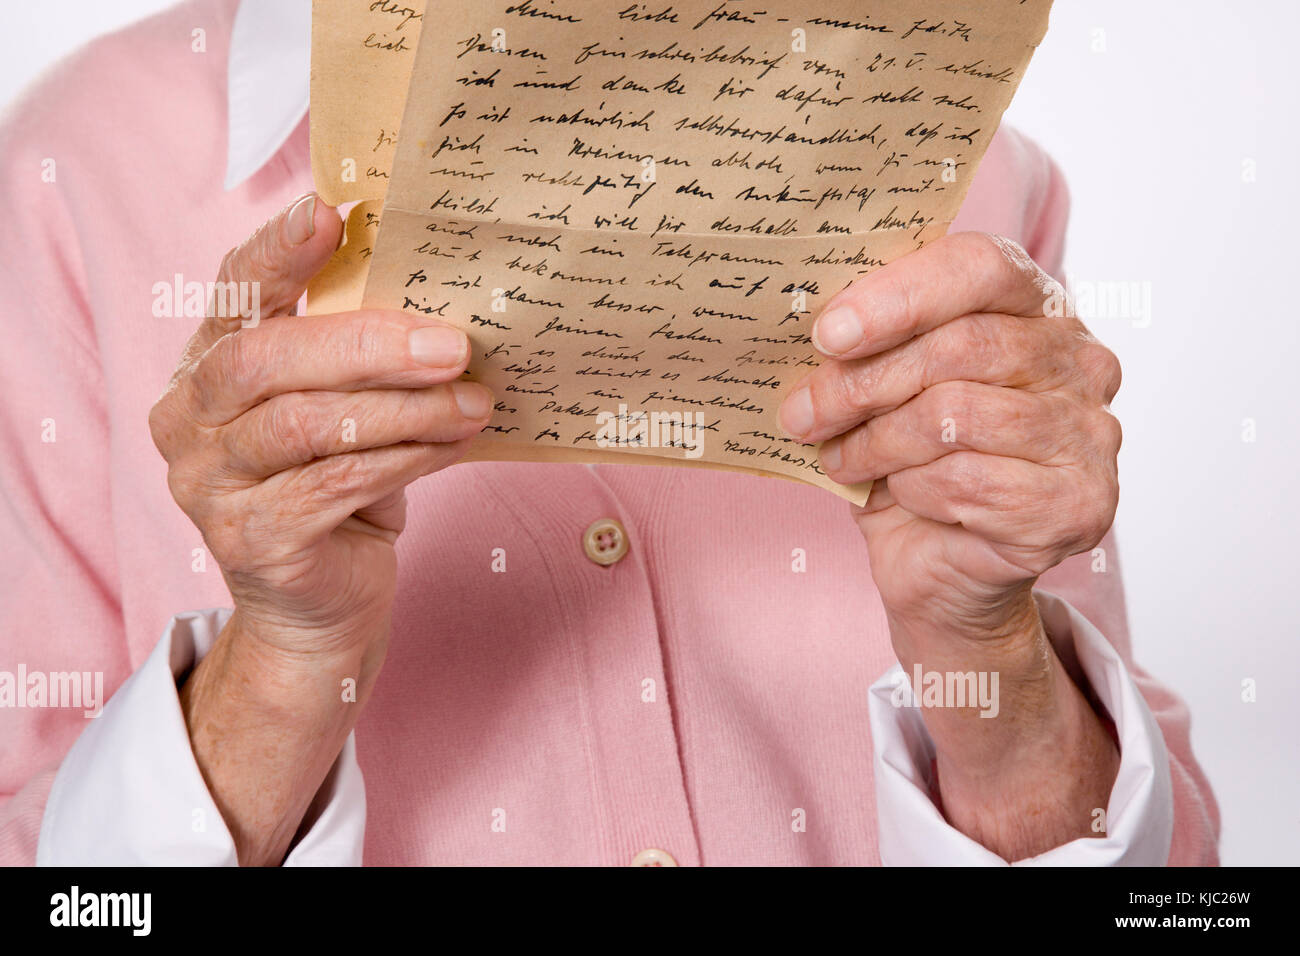 Herz
lieb
meine liebe Frau - meine Edith
Deinen Einschreibebrief vom 21. V. erhielt
ich und danke Dir dafür recht sehr.
Es ist natürlich selbstverständlich, daß ich
Dich in Kreiensen abhole, wenn Du mir
nur rechtzeitig den Ankunftstag mit-
teilst, ich will Dir deshalb am Montag
auch noch ein Telegramm schicken
laut bekomme ich auf alle
Es ist dann besser, wenn Du
viel von Deinen Sachen mit
Du es durch den Spedite
läßt dauert es Monate
auch ein ziemliches
des Paket ist noch
war ja gerade das Kostbarste
alamy stock photo
alamy
Image ID: KJC26W
www.alamy.com